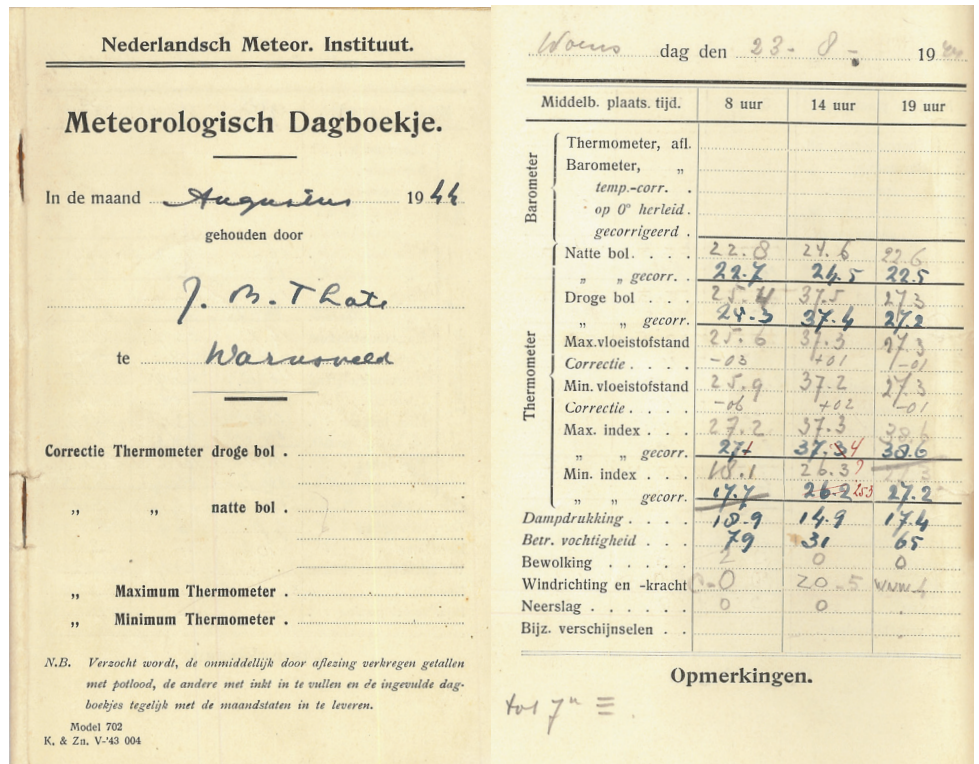 Nederlandsch Meteor. Instituut.
Meteorologisch Dagboekje.
In de maand Augustus 1944
gehouden door
J. B. Thate
te Warnsveld
Correctie Thermometer droge bol .
„ „ natte bol .
„ Maximum Thermometer .
„ Minimum Thermometer .
N.B. Verzocht wordt, de onmiddellijk door aflezing verkregen getallen
met potlood, de andere met inkt in te vullen en de ingevulde dag-
boekjes tegelijk met de maandstaten in te leveren.
Model 702
K. & Zn. V-'43 004
Woens dag den 23 - 8 - 1944
Middelb. plaats. tijd. 8 uur 14 uur 19 uur
Barometer
Thermometer, afl.
Barometer, „
temp.-corr. .
op 0° herleid .
gecorrigeerd .
Thermometer
Natte bol . . . . 22.8 24.6 22.6
„ „ gecorr. . 22.7 24.5 22.5
Droge bol . . . 25.4 37.5 27.3
„ „ gecorr. 24.3 37.4 27.2
Max. vloeistofstand 25.6 37.3 27.3
Correctie . . . . -03 +01 -01
Min. vloeistofstand 25.9 37.2 27.3
Correctie . . . . -06 +02 -01
Max. index . . . 27.2 37.3 38.6
„ „ gecorr. 27 37.3 4 38.6
Min. index . . . 18.1 26.3?
„ „ gecorr. 17.7 26.2 253 27.2
Dampdrukking . . . . 18.9 14.9 17.4
Betr. vochtigheid . . . 79 31 65
Bewolking . . . . . 2 0 0
Windrichting en -kracht -0 ZO-5 WNW-4
Neerslag . . . . . . 0 0
Bijz. verschijnselen . .
Opmerkingen.
tot 7u ≡